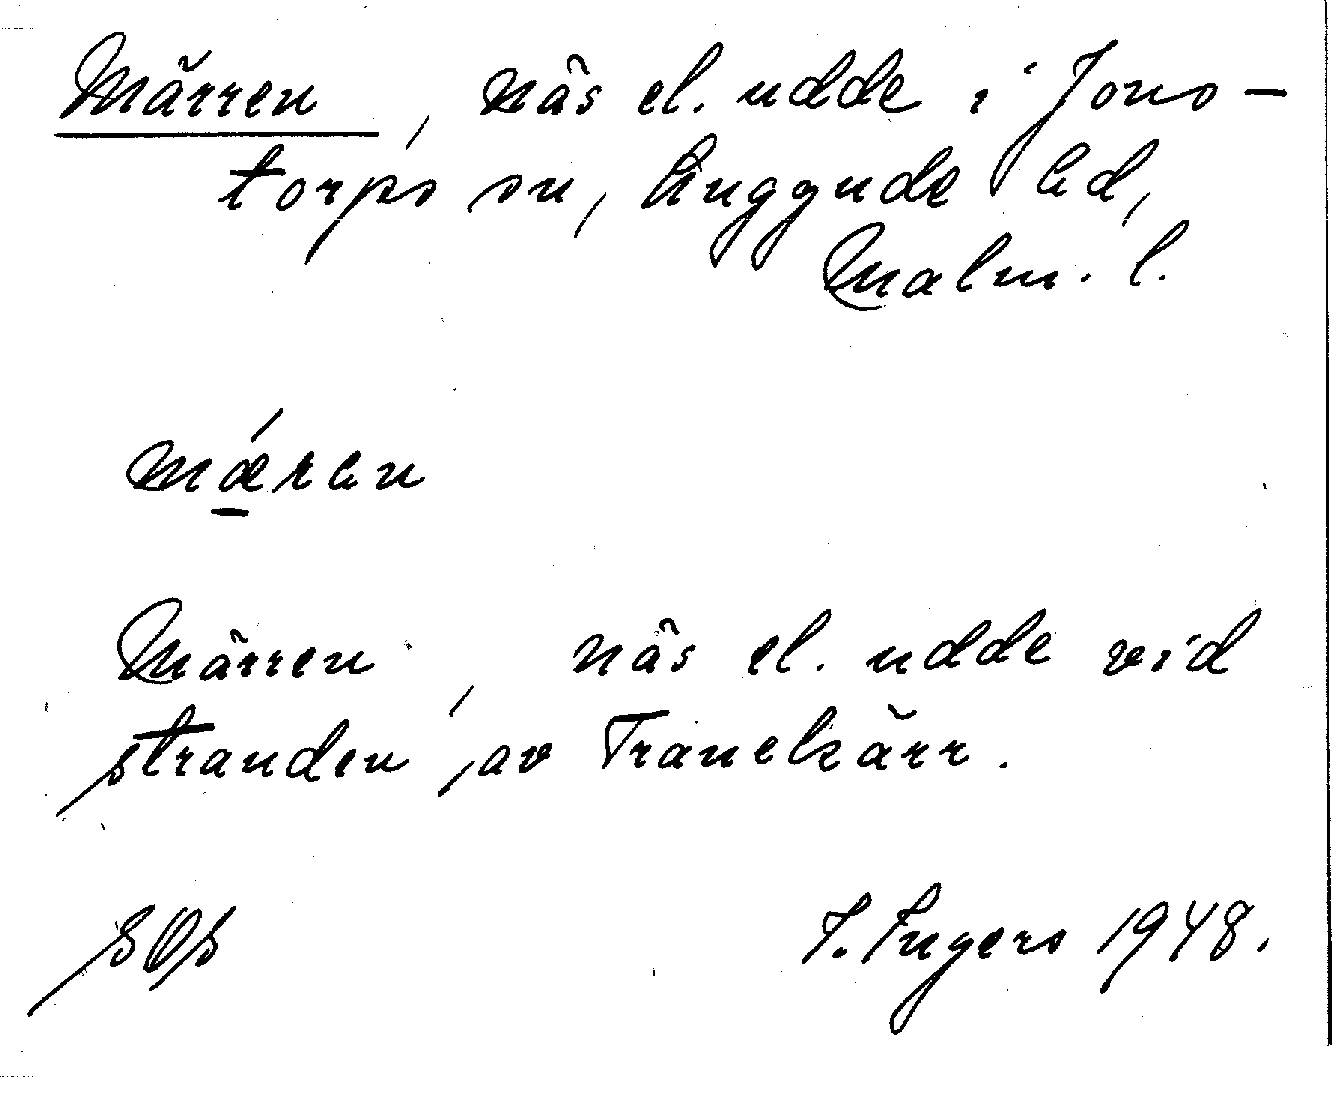 Märren, näs el. udde i Jons-
torps sn, Luggude hd,
Malm. l.
mǽren
Märren, näs el. udde vid
stranden av Tranekärr.
SOS
I. Ingers 1948.